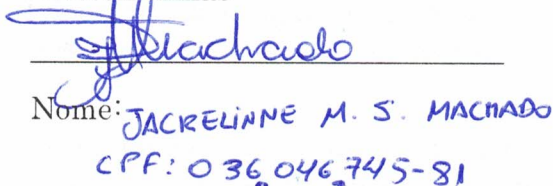 JMachado
Nome: JACKELINNE M. S. MACHADO
CPF: 036.046.745-81